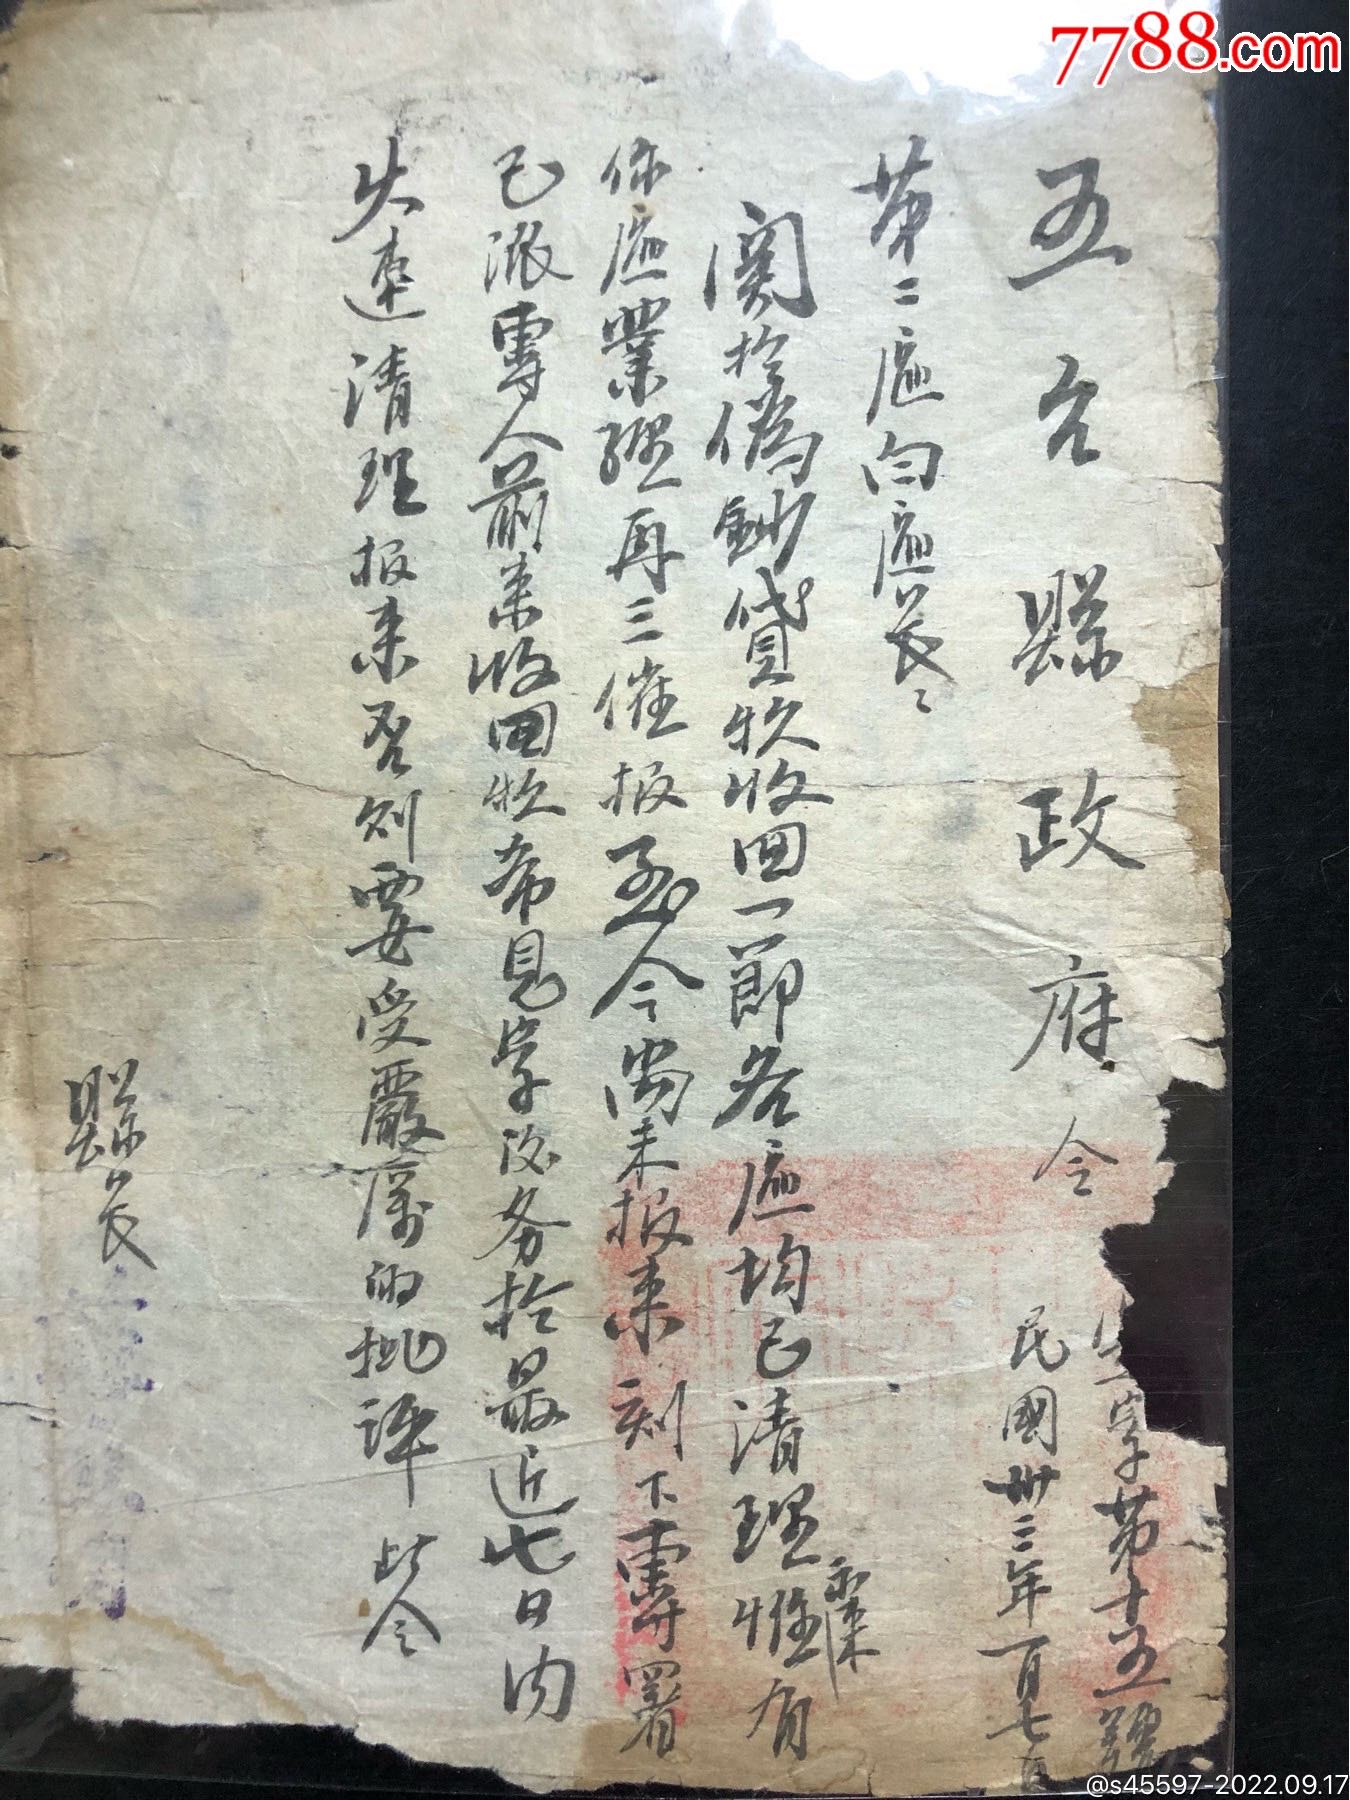 7788.com
五台縣政府令
字第十五號
民國卅三年一月七日
第二區白區長：
関於偽鈔貸款收回一節各區均已清理惟有
你區業經再三催报至今尚未报来刻下專署
已派專人前来收回款希見字後务於最近七日内
火速清理报来否则要受嚴厲的批评 此令
縣長
@s45597-2022.09.17